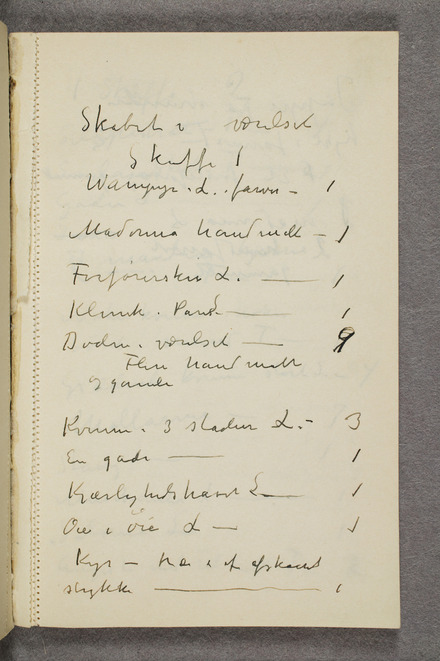 Skabet i værelset
Skuffe 1
Wampyr i L. farver – 1
Madonna haandmalt – 1
Forførersken L. — 1
Klinik. Paris — 1
Døden i værelset — 9
Flere haandmalte
og gamle
Kvinnen i 3 stadier L. – 3
En gade — 1
Kjærlighedshavet L — 1
Øie i Øie L — 1
Kys – træ i et afskaaret
stykke — 1